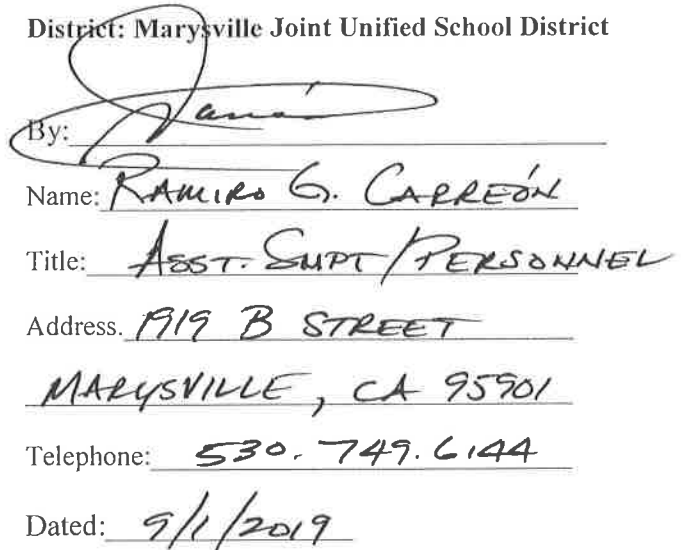 District: Marysville Joint Unified School District
By:
Name: RAMIRO G. CARREÓN
Title: ASST. SUPT/PERSONNEL
Address. 1919 B STREET
MARYSVILLE, CA 95901
Telephone: 530.749.6144
Dated: 9/1/2019